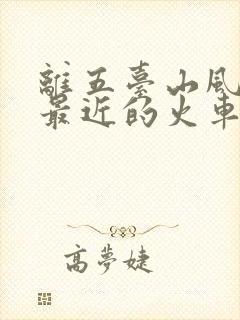 離五臺山風
最近的火車
高夢婕